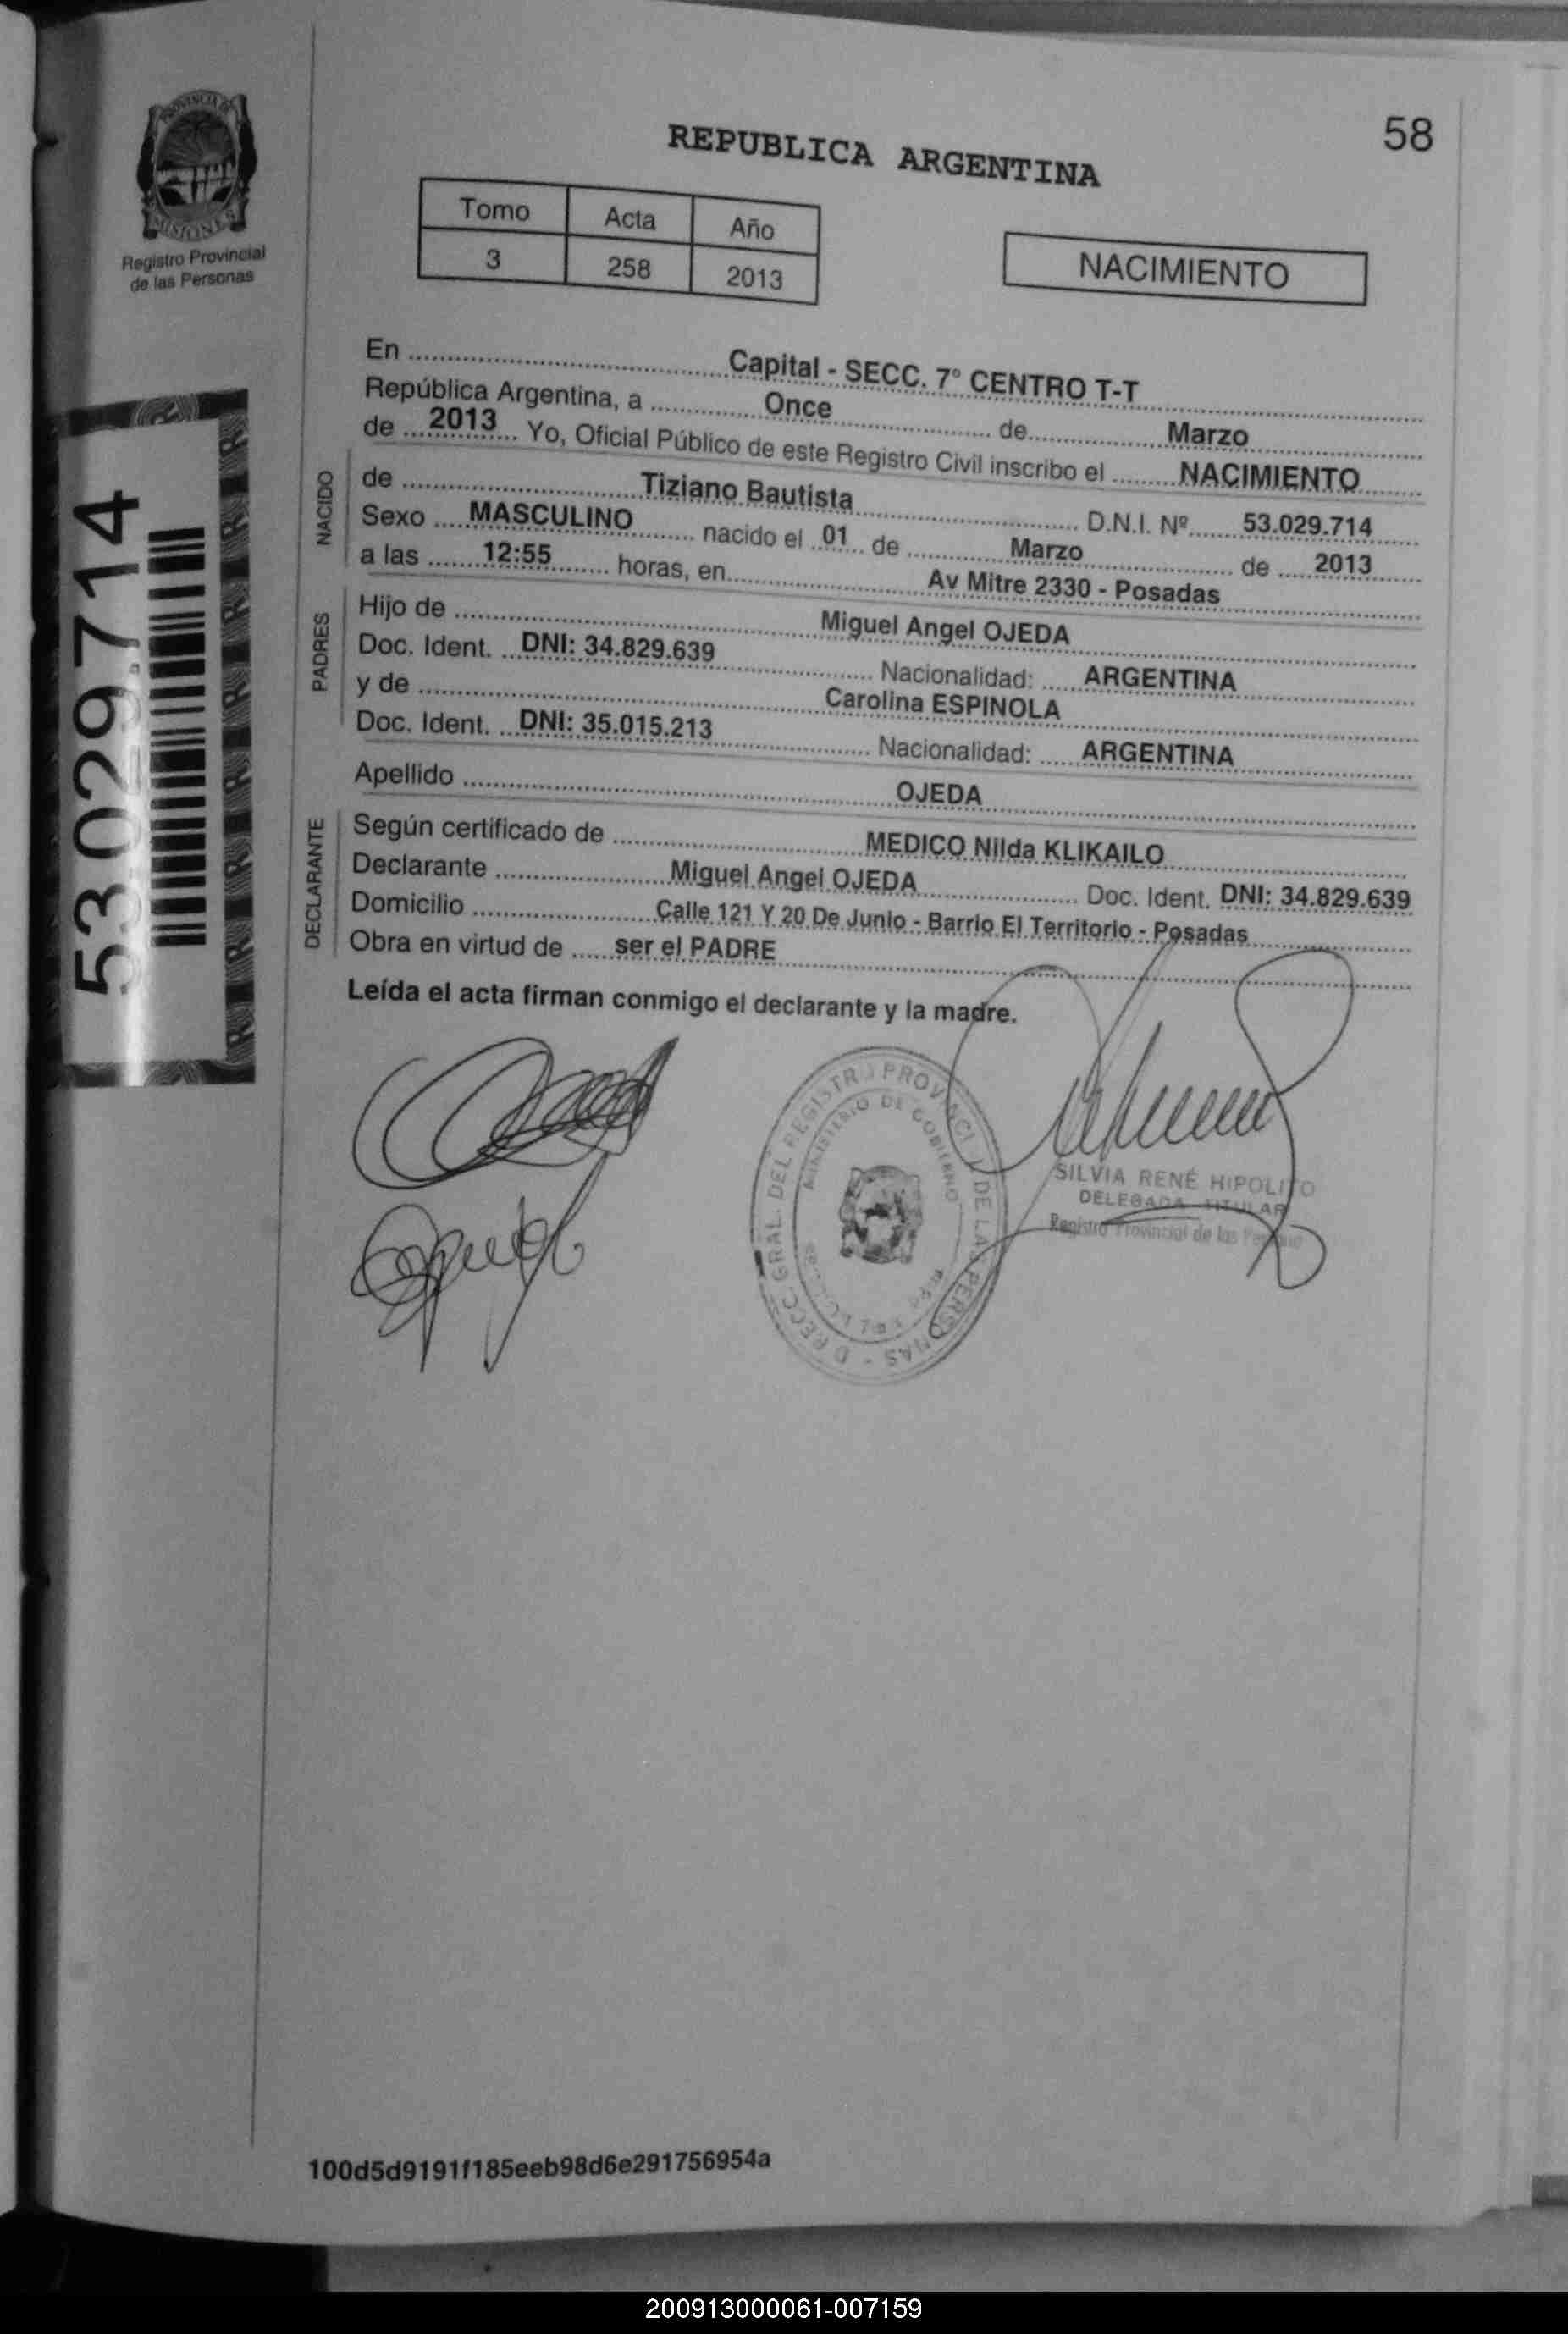 PROVINCIA DE
MISIONES
Registro Provincial
de las Personas
58
REPUBLICA ARGENTINA
Tomo Acta Año
3 258 2013
NACIMIENTO
En Capital - SECC. 7° CENTRO T-T
República Argentina, a Once de Marzo
de 2013 Yo, Oficial Público de este Registro Civil inscribo el NACIMIENTO
NACIDO
de Tiziano Bautista D.N.I. Nº 53.029.714
Sexo MASCULINO nacido el 01 de Marzo de 2013
a las 12:55 horas, en Av Mitre 2330 - Posadas
PADRES
Hijo de Miguel Angel OJEDA
Doc. Ident. DNI: 34.829.639 Nacionalidad: ARGENTINA
y de Carolina ESPINOLA
Doc. Ident. DNI: 35.015.213 Nacionalidad: ARGENTINA
Apellido OJEDA
DECLARANTE
Según certificado de MEDICO Nilda KLIKAILO
Declarante Miguel Angel OJEDA Doc. Ident. DNI: 34.829.639
Domicilio Calle 121 Y 20 De Junio - Barrio El Territorio - Posadas
Obra en virtud de ser el PADRE
Leída el acta firman conmigo el declarante y la madre.
53.029.714
GRAL. DEL REGISTRO PROVINCIAL DE LAS PERSONAS
MINISTERIO DE GOBIERNO
SILVIA RENÉ HIPOLITO
DELEGADA TITULAR
Registro Provincial de las
100d5d9191f185eeb98d6e291756954a
200913000061-007159